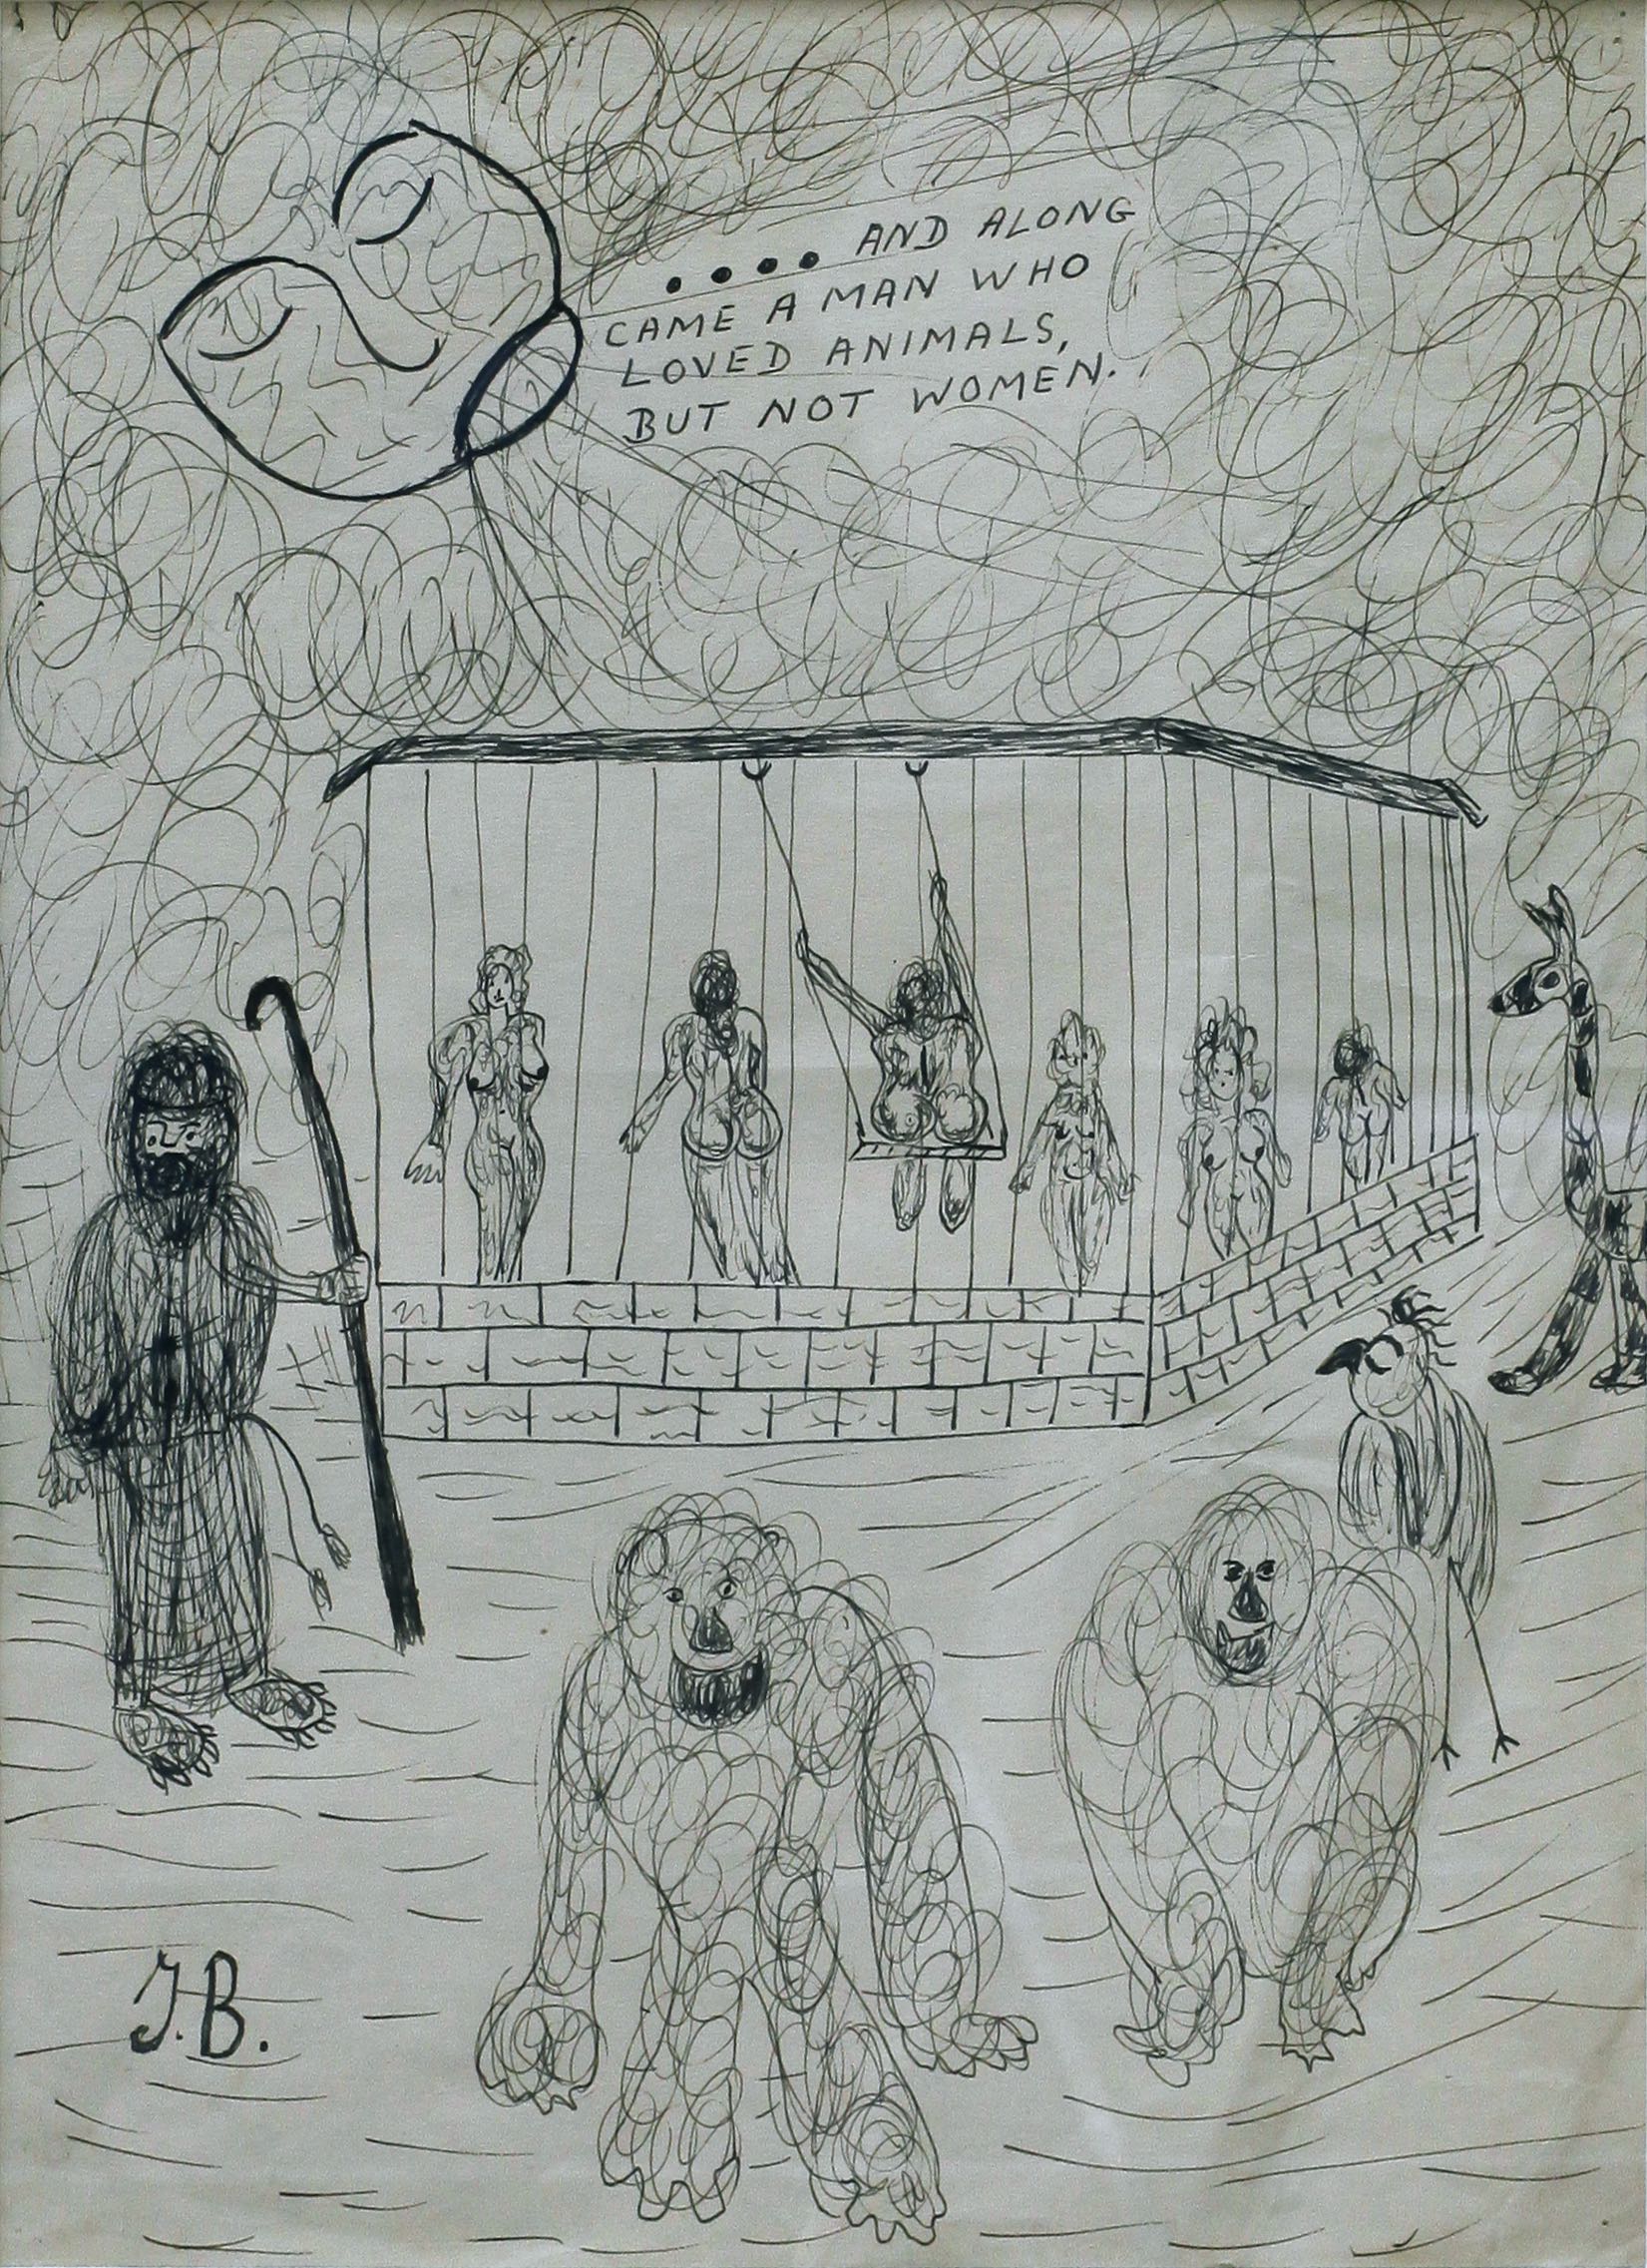 .... AND ALONG
CAME A MAN WHO
LOVED ANIMALS,
BUT NOT WOMEN.
J.B.